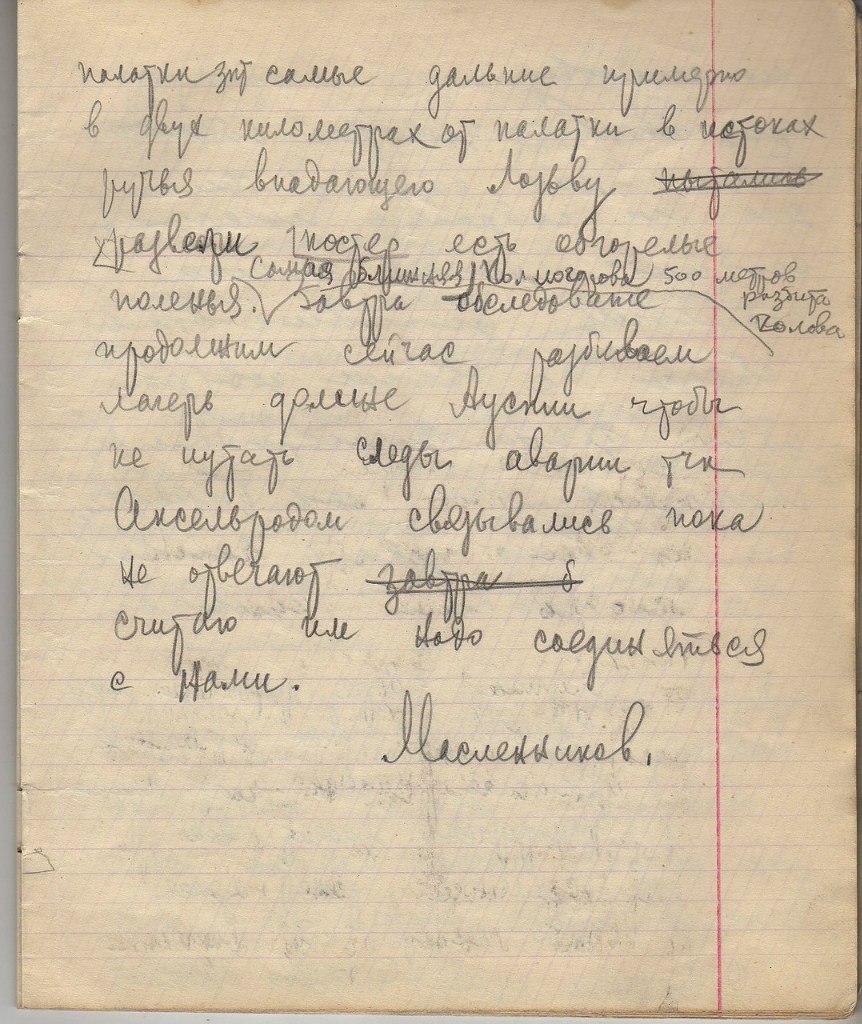 палатки зпт самые дальние примерно
в двух километрах от палатки в истоках
ручья впадающего Лозьву пытались
развели костер есть обгорелые
Самая ближняя Колмогорова 500 метров
разбита
голова
поленья. Завтра обследование
продолжим сейчас разбиваем
лагерь дольше Ауспии чтобы
не путать следы аварии тчк
Аксельродом связывались пока
не отвечают завтра б
считаю им надо соединяться
с нами.
Масленников.